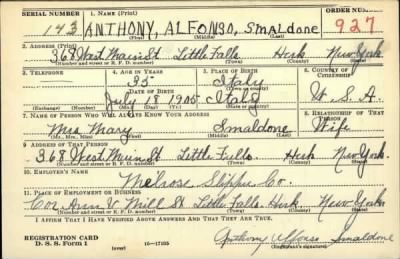 SERIAL NUMBER 1. NAME (Print) ORDER NUMBER
143 ANTHONY, ALFONSO, Smaldone 927
(First) (Middle) (Last)
2. ADDRESS (Print)
368 West Main St Little Falls Herk New York
(Number and street or R. F. D. number) (Town) (County) (State)
3. TELEPHONE 4. AGE IN YEARS 5. PLACE OF BIRTH 6. COUNTRY OF CITIZENSHIP
35 Italy
DATE OF BIRTH (Town or county)
July 18 1905 Italy U.S.A.
(Exchange) (Number) (Mo.) (Day) (Yr.) (State or country)
7. NAME OF PERSON WHO WILL ALWAYS KNOW YOUR ADDRESS 8. RELATIONSHIP OF THAT PERSON
Mrs Mary Smaldone Wife
(Mr., Mrs., Miss) (First) (Middle) (Last)
9. ADDRESS OF THAT PERSON
368 West Main St Little Falls Herk New York
(Number and street or R. F. D. number) (Town) (County) (State)
10. EMPLOYER'S NAME
Melrose Slipper Co.
11. PLACE OF EMPLOYMENT OR BUSINESS
Cor Ann & Mill St Little Falls Herk. New York
(Number and street or R. F. D. number) (Town) (County) (State)
I AFFIRM THAT I HAVE VERIFIED ABOVE ANSWERS AND THAT THEY ARE TRUE.
REGISTRATION CARD
D. S. S. Form 1 (over) 16-17105
Anthony Alfonso Smaldone
(Registrant's signature)